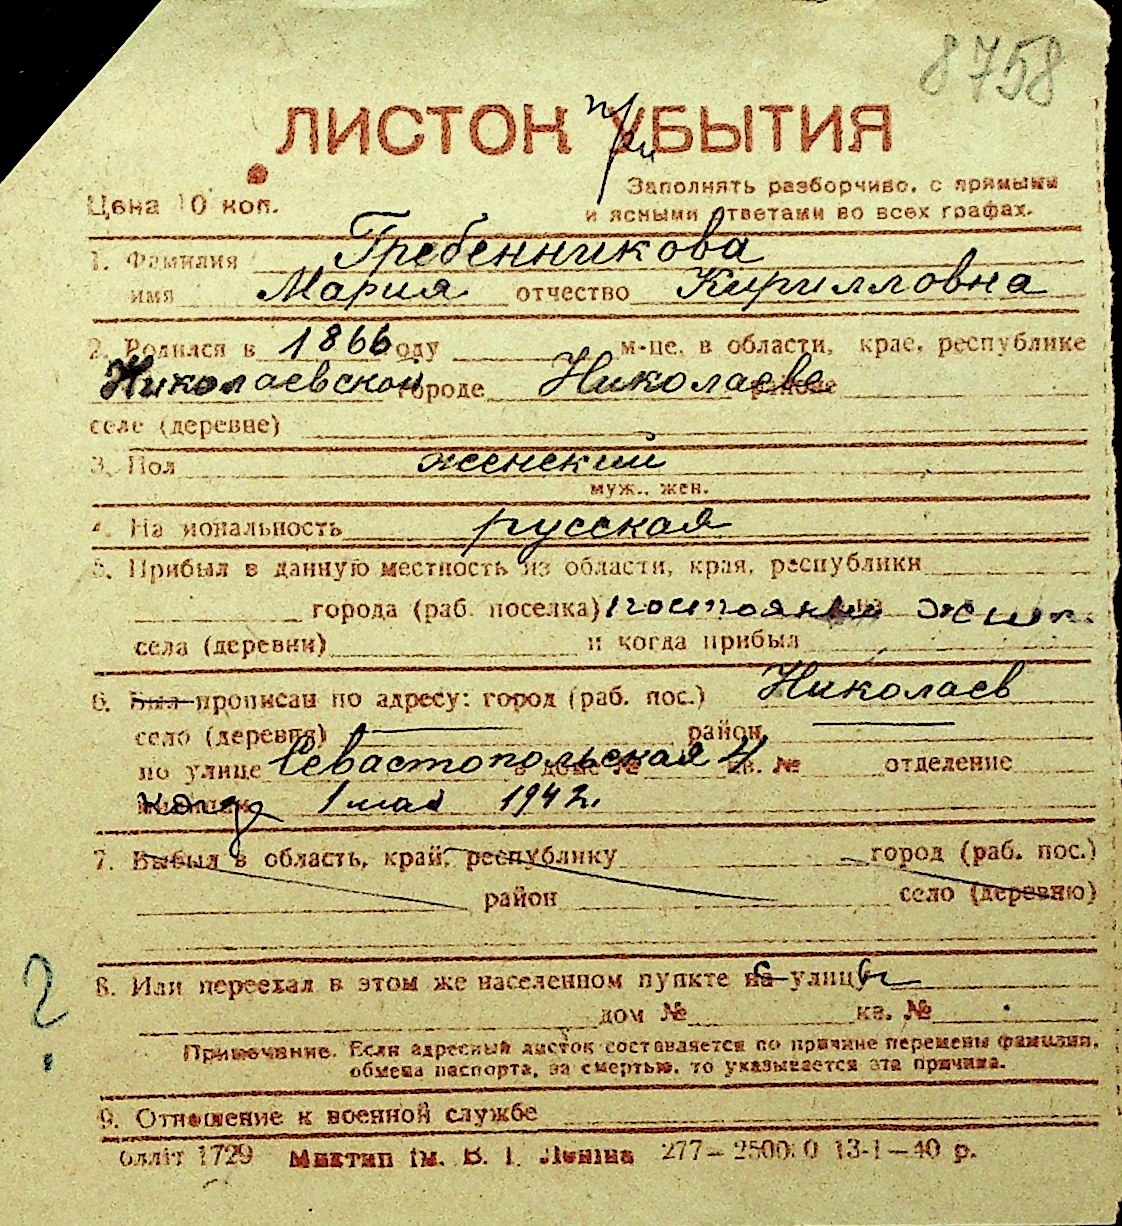 8758
ЛИСТОК при УБЫТИЯ
Заполнять разборчиво, с прямыми
Цена 10 коп.
и ясными ответами во всех графах.
1. Фамилия Гребенникова
имя Мария отчество Кирилловна
2. Родился в 1866 году м-це, в области, крае, республике
Николаевской городе Николаеве районе
селе (деревне)
3. Пол женский
муж., жен.
4. Национальность русская
5. Прибыл в данную местность из области, края, республики
города (раб. поселка) постоянный жит.
села (деревни) и когда прибыл
6. Был прописан по адресу: город (раб. пос.) Николаев
село (деревня) — район —
по улице Севастопольская 4 в доме № кв. № отделение
когда 1 мая 1942.
7. Выбыл в область, край, республику город (раб. пос.)
район село (деревню)
8. Или переехал в этом же населенном пункте на с улицы
дом № кв. №
?
Примечание. Если адресный листок составляется по причине перемены фамилии,
обмена паспорта, за смертью, то указывается эта причина.
9. Отношение к военной службе
Олліт 1729 Миктип ім. В. І. Леніна 277—25000 13-I—40 р.